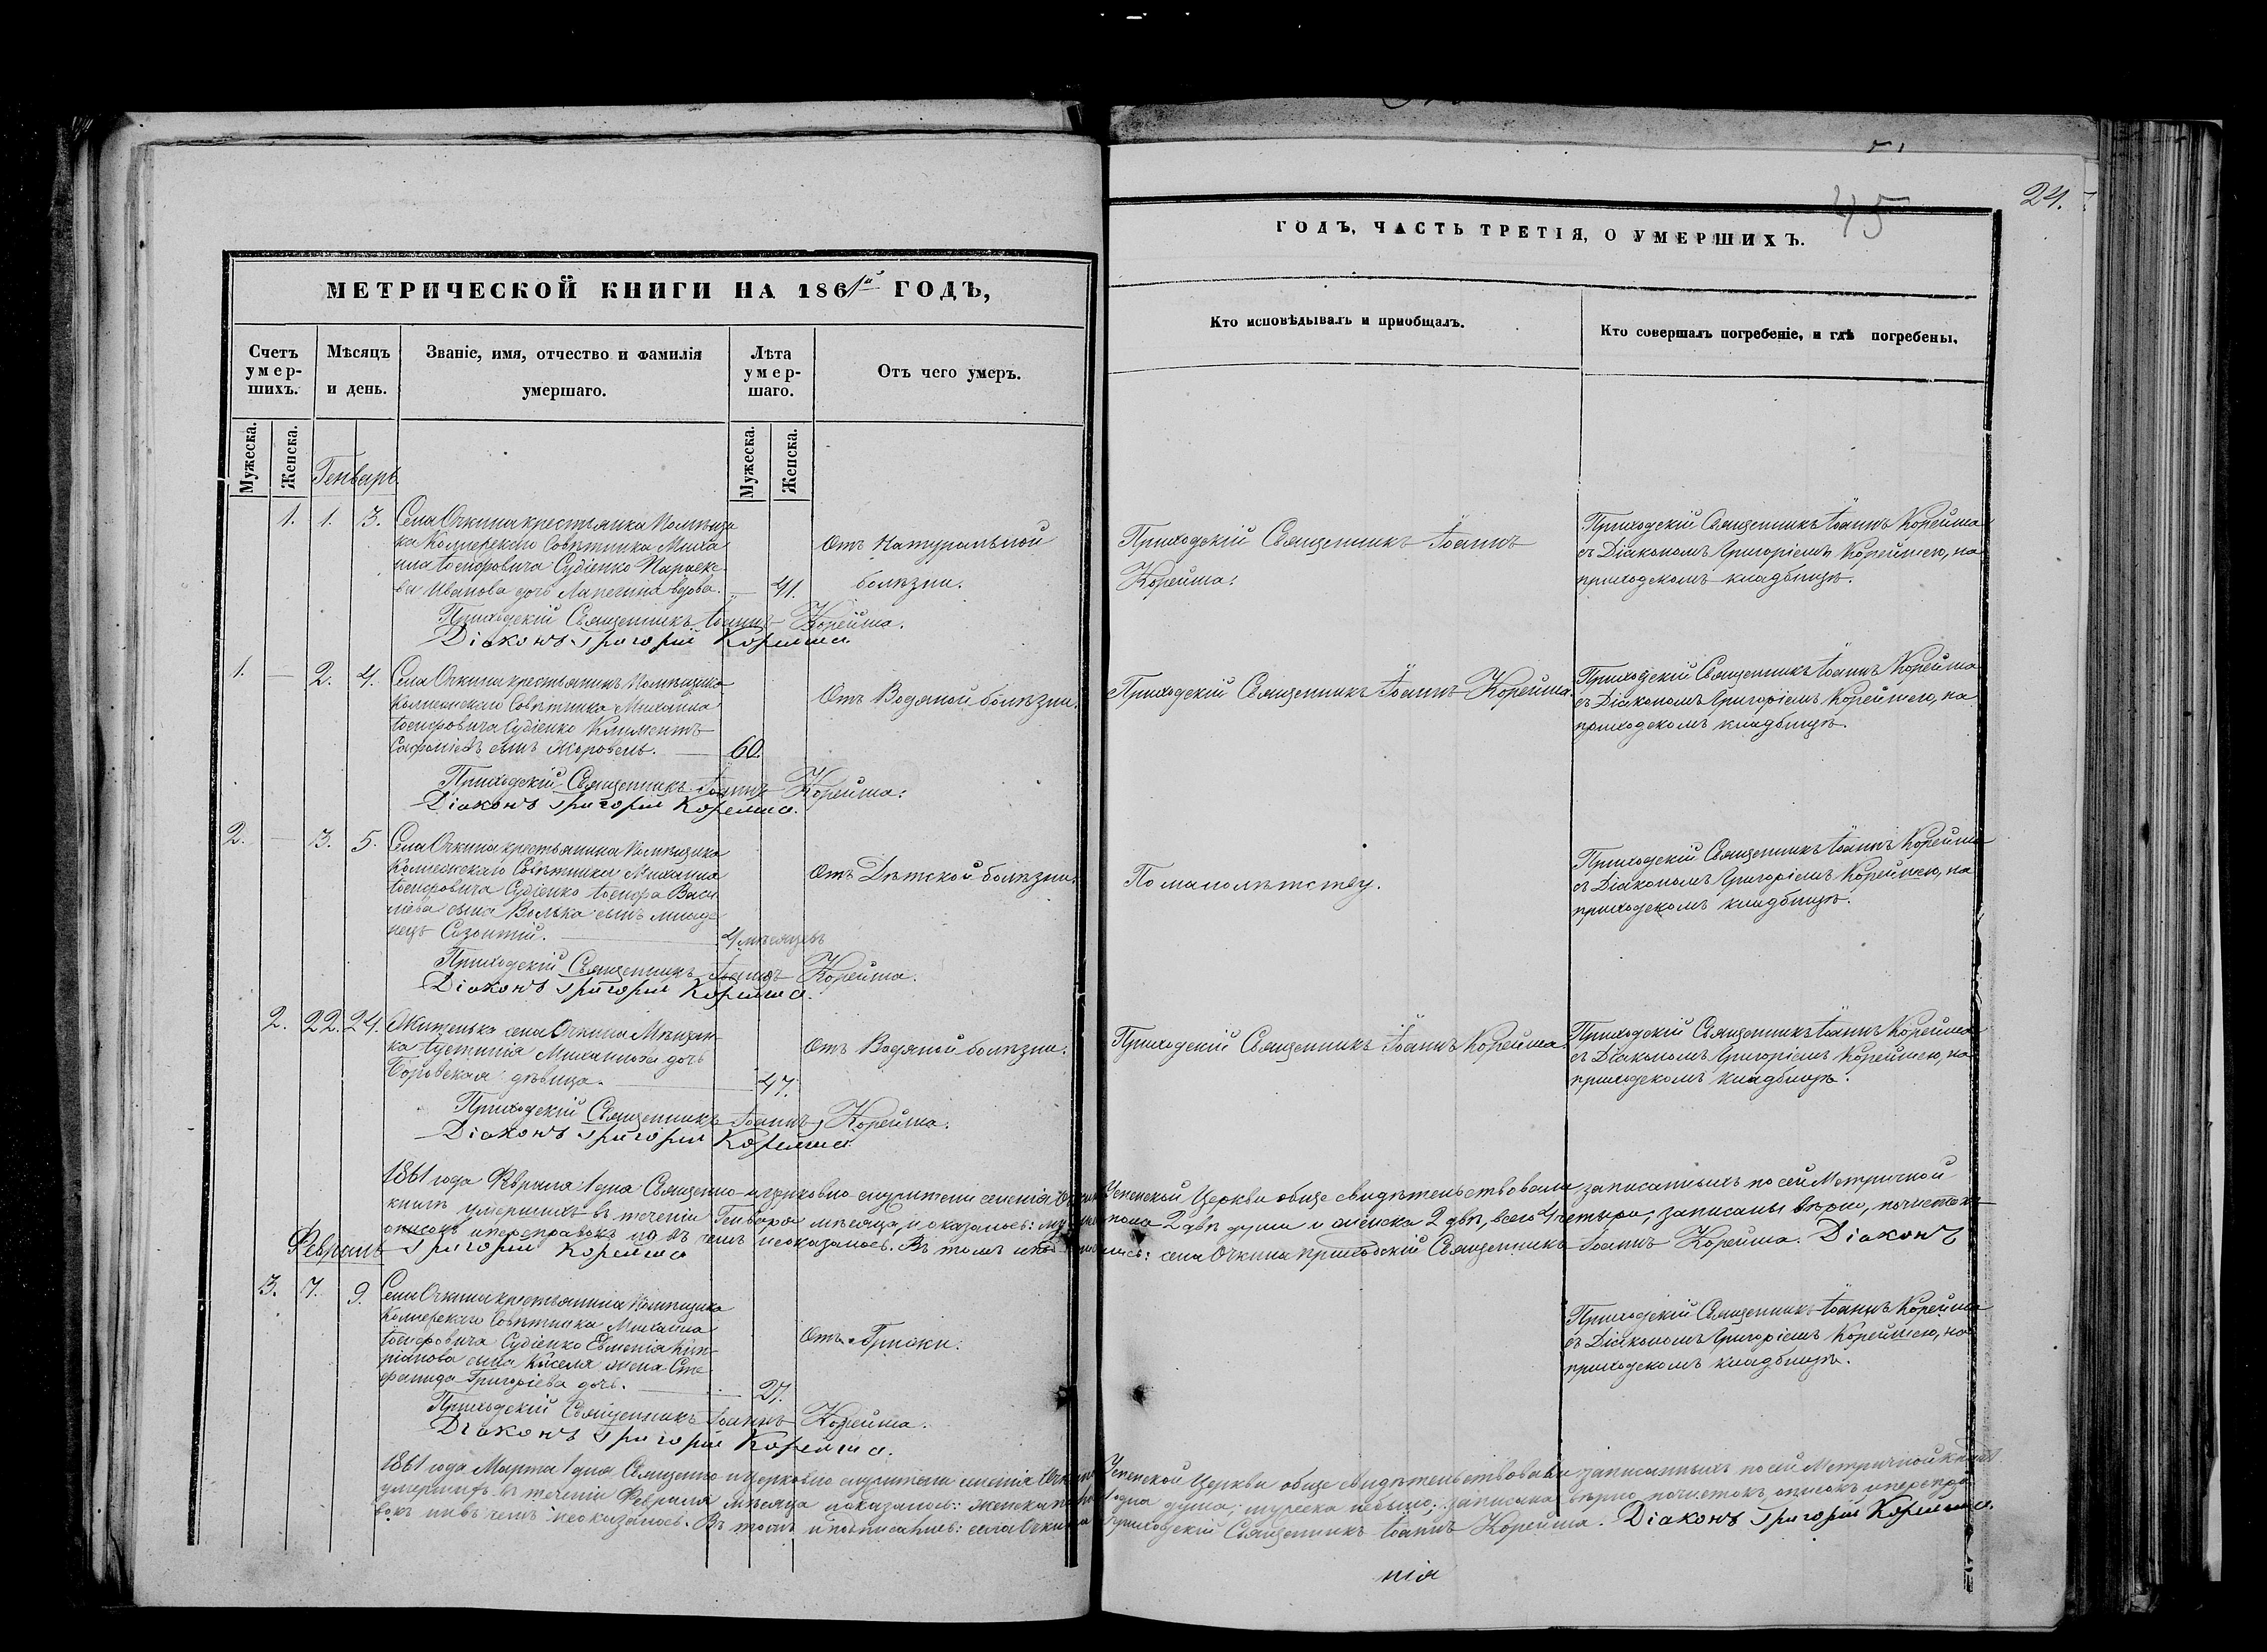 45
24.
МЕТРИЧЕСКОЙ КНИГИ НА 1861й ГОДЪ,
ГОДЪ, ЧАСТЬ ТРЕТІЯ, О УМЕРШИХЪ.
Счетъ умер-шихъ.
Мѣсяцъ и день.
Званіе, имя, отчество и фамилія умершаго.
Лѣта умер-шаго.
Отъ чего умеръ.
Кто исповѣдывалъ и пріобщалъ.
Кто совершалъ погребеніе, и гдѣ погребены.
Мужеска.
Женска.
Мужеска.
Женска.
Генварь
1. 1. 3.
Села Очкина крестьянка Помѣщи
ка Коллежскаго Совѣтника Миха
ила Іосифовича Судіенко Параске-
ва Иванова дочь Лапегина вдова.
41.
Отъ Натуральной
болѣзни.
Приходскій Священникъ Іоаннъ
Корейша.
Приходскій Священникъ Іоаннъ Корейша
съ Діакономъ Григоріемъ Корейшею, на
приходскомъ кладбищѣ.
Приходскій Священникъ Іоаннъ Корейша.
Діаконъ Григорій Корейша.
1. — 2. 4.
Села Очкина крестьянинъ Помѣщика
Коллежскаго Совѣтника Михаила
Іосифовича Судіенко Климентъ
Софоніевъ сынъ Жоровель.
60.
Отъ Водяной болѣзни.
Приходскій Священникъ Іоаннъ Корейша.
Приходскій Священникъ Іоаннъ Корейша
съ Діакономъ Григоріемъ Корейшею, на
приходскомъ кладбищѣ.
Приходскій Священникъ Іоаннъ Корейша.
Діаконъ Григорій Корейша.
2. — 3. 5.
Села Очкина крестьянина Помѣщика
Коллежскаго Совѣтника Михаила
Іосифовича Судіенко Іосифа Васи
ліева сына Волька сынъ младе
нецъ Созонтій.
4 мѣсяцевъ
Отъ Дѣтской болѣзни.
По малолѣтству.
Приходскій Священникъ Іоаннъ Корейша
съ Діакономъ Григоріемъ Корейшею, на
приходскомъ кладбищѣ.
Приходскій Священникъ Іоаннъ Корейша.
Діаконъ Григорій Корейша.
2. 22. 24.
Жителька села Очкина Мѣщан-
ка Іустинія Михаилова дочь
Боровская дѣвица.
47.
Отъ Водяной болѣзни.
Приходскій Священникъ Іоаннъ Корейша
Приходскій Священникъ Іоаннъ Корейша
съ Діакономъ Григоріемъ Корейшею, на
приходскомъ кладбищѣ.
Приходскій Священникъ Іоаннъ Корейша.
Діаконъ Григорій Корейша.
1861 года Февраля 1 дня Священно и церковно служители селенія Очкина Успенской Церкви обще свидѣтельствовали записанныхъ по сей Метричной
книгѣ умершихъ въ теченіи Генваря мѣсяца, и оказалось: мужеска пола 2 двѣ души и женска 2 двѣ, всего 4 четыре; записаны вѣрно, почистокъ
описокъ и переправокъ ни въ чемъ неоказалось. Въ томъ и подписались: села Очкина приходскій Священникъ Іоаннъ Корейша. Діаконъ
Григорій Корейша
Февраль
3. 7. 9.
Села Очкина крестьянина Помѣщика
Коллежскаго Совѣтника Михаила
Іосифовича Судіенко Евменія Кип-
ріанова сына Киселя жена Сте
фанида Григоріева дочь.
27.
Отъ Грижи.
Приходскій Священникъ Іоаннъ Корейша
съ Діакономъ Григоріемъ Корейшею, на
приходскомъ кладбищѣ.
Приходскій Священникъ Іоаннъ Корейша.
Діаконъ Григорій Корейша.
1861 года Марта 1 дня Священно и Церковно служители селенія Очкина Успенской Церкви обще свидѣтельствовали записанныхъ по сей Метричной книгѣ
умершихъ въ теченіи Февраля мѣсяца и оказалось: женска пола 1 одна душа; мужеска небыло; записана вѣрно почистокъ описокъ и перепра
вокъ ни въ чемъ неоказалось. Въ томъ и подписались: села Очкина приходскій Священникъ Іоаннъ Корейша. Діаконъ Григорій Корейша.
нія